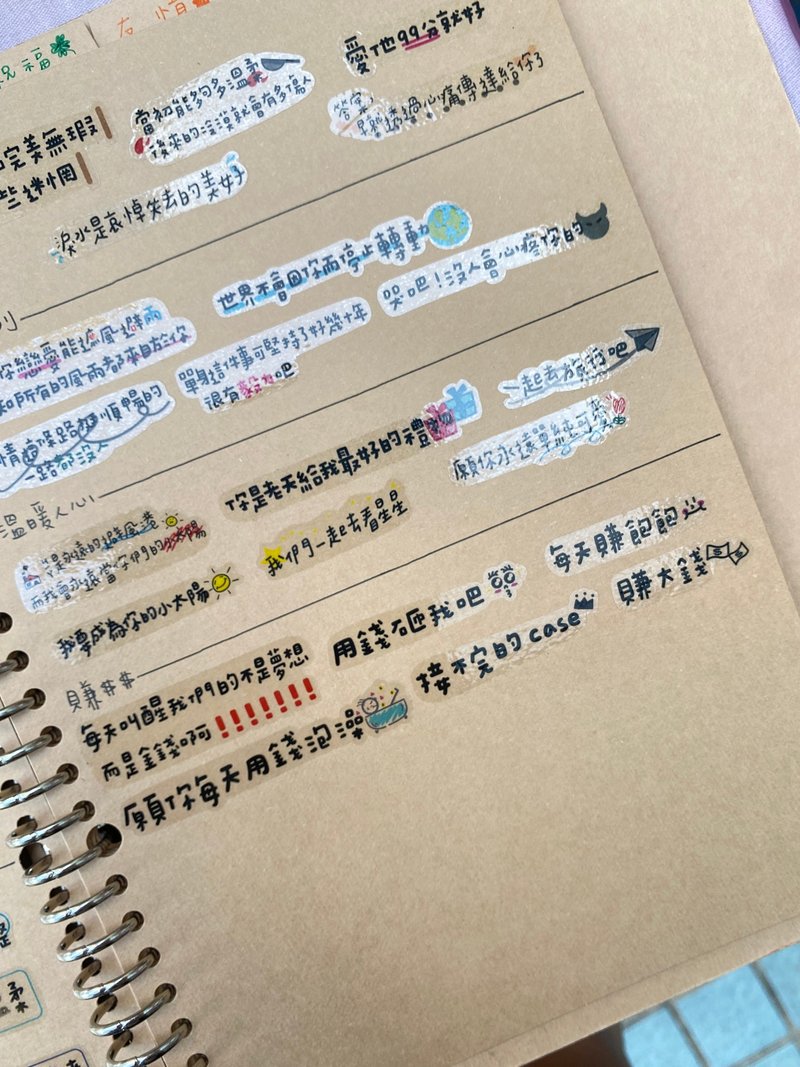 祝福
右 情
完美無瑕
些迷惘
當初能夠多溫柔
後來的沒淚就會有多傷人
愛他99分就好
答案
早就透過心痛傳達給你了
淚水是哀悼失去的美好
世界不會因你而停止轉動
哭吧！沒人會心疼你的
你戀愛能遮風避雨
知所有的風雨都來自於你
單身這件事可堅持了好幾十年
很有毅力吧
情 候路 順暢的
一路都沒人
一起去旅行吧
溫暖人心
你是老天給我最好的禮物
願你永遠單純可愛
是永遠的避風港
而我會永遠當你們的太陽
我們一起去看星星
我要成為你的小太陽
賺##
每天叫醒我們的不是夢想
而是金錢啊!!!!!!!
用錢砸我吧
每天賺飽飽
接不完的case
賺大錢
願你每天用錢泡澡